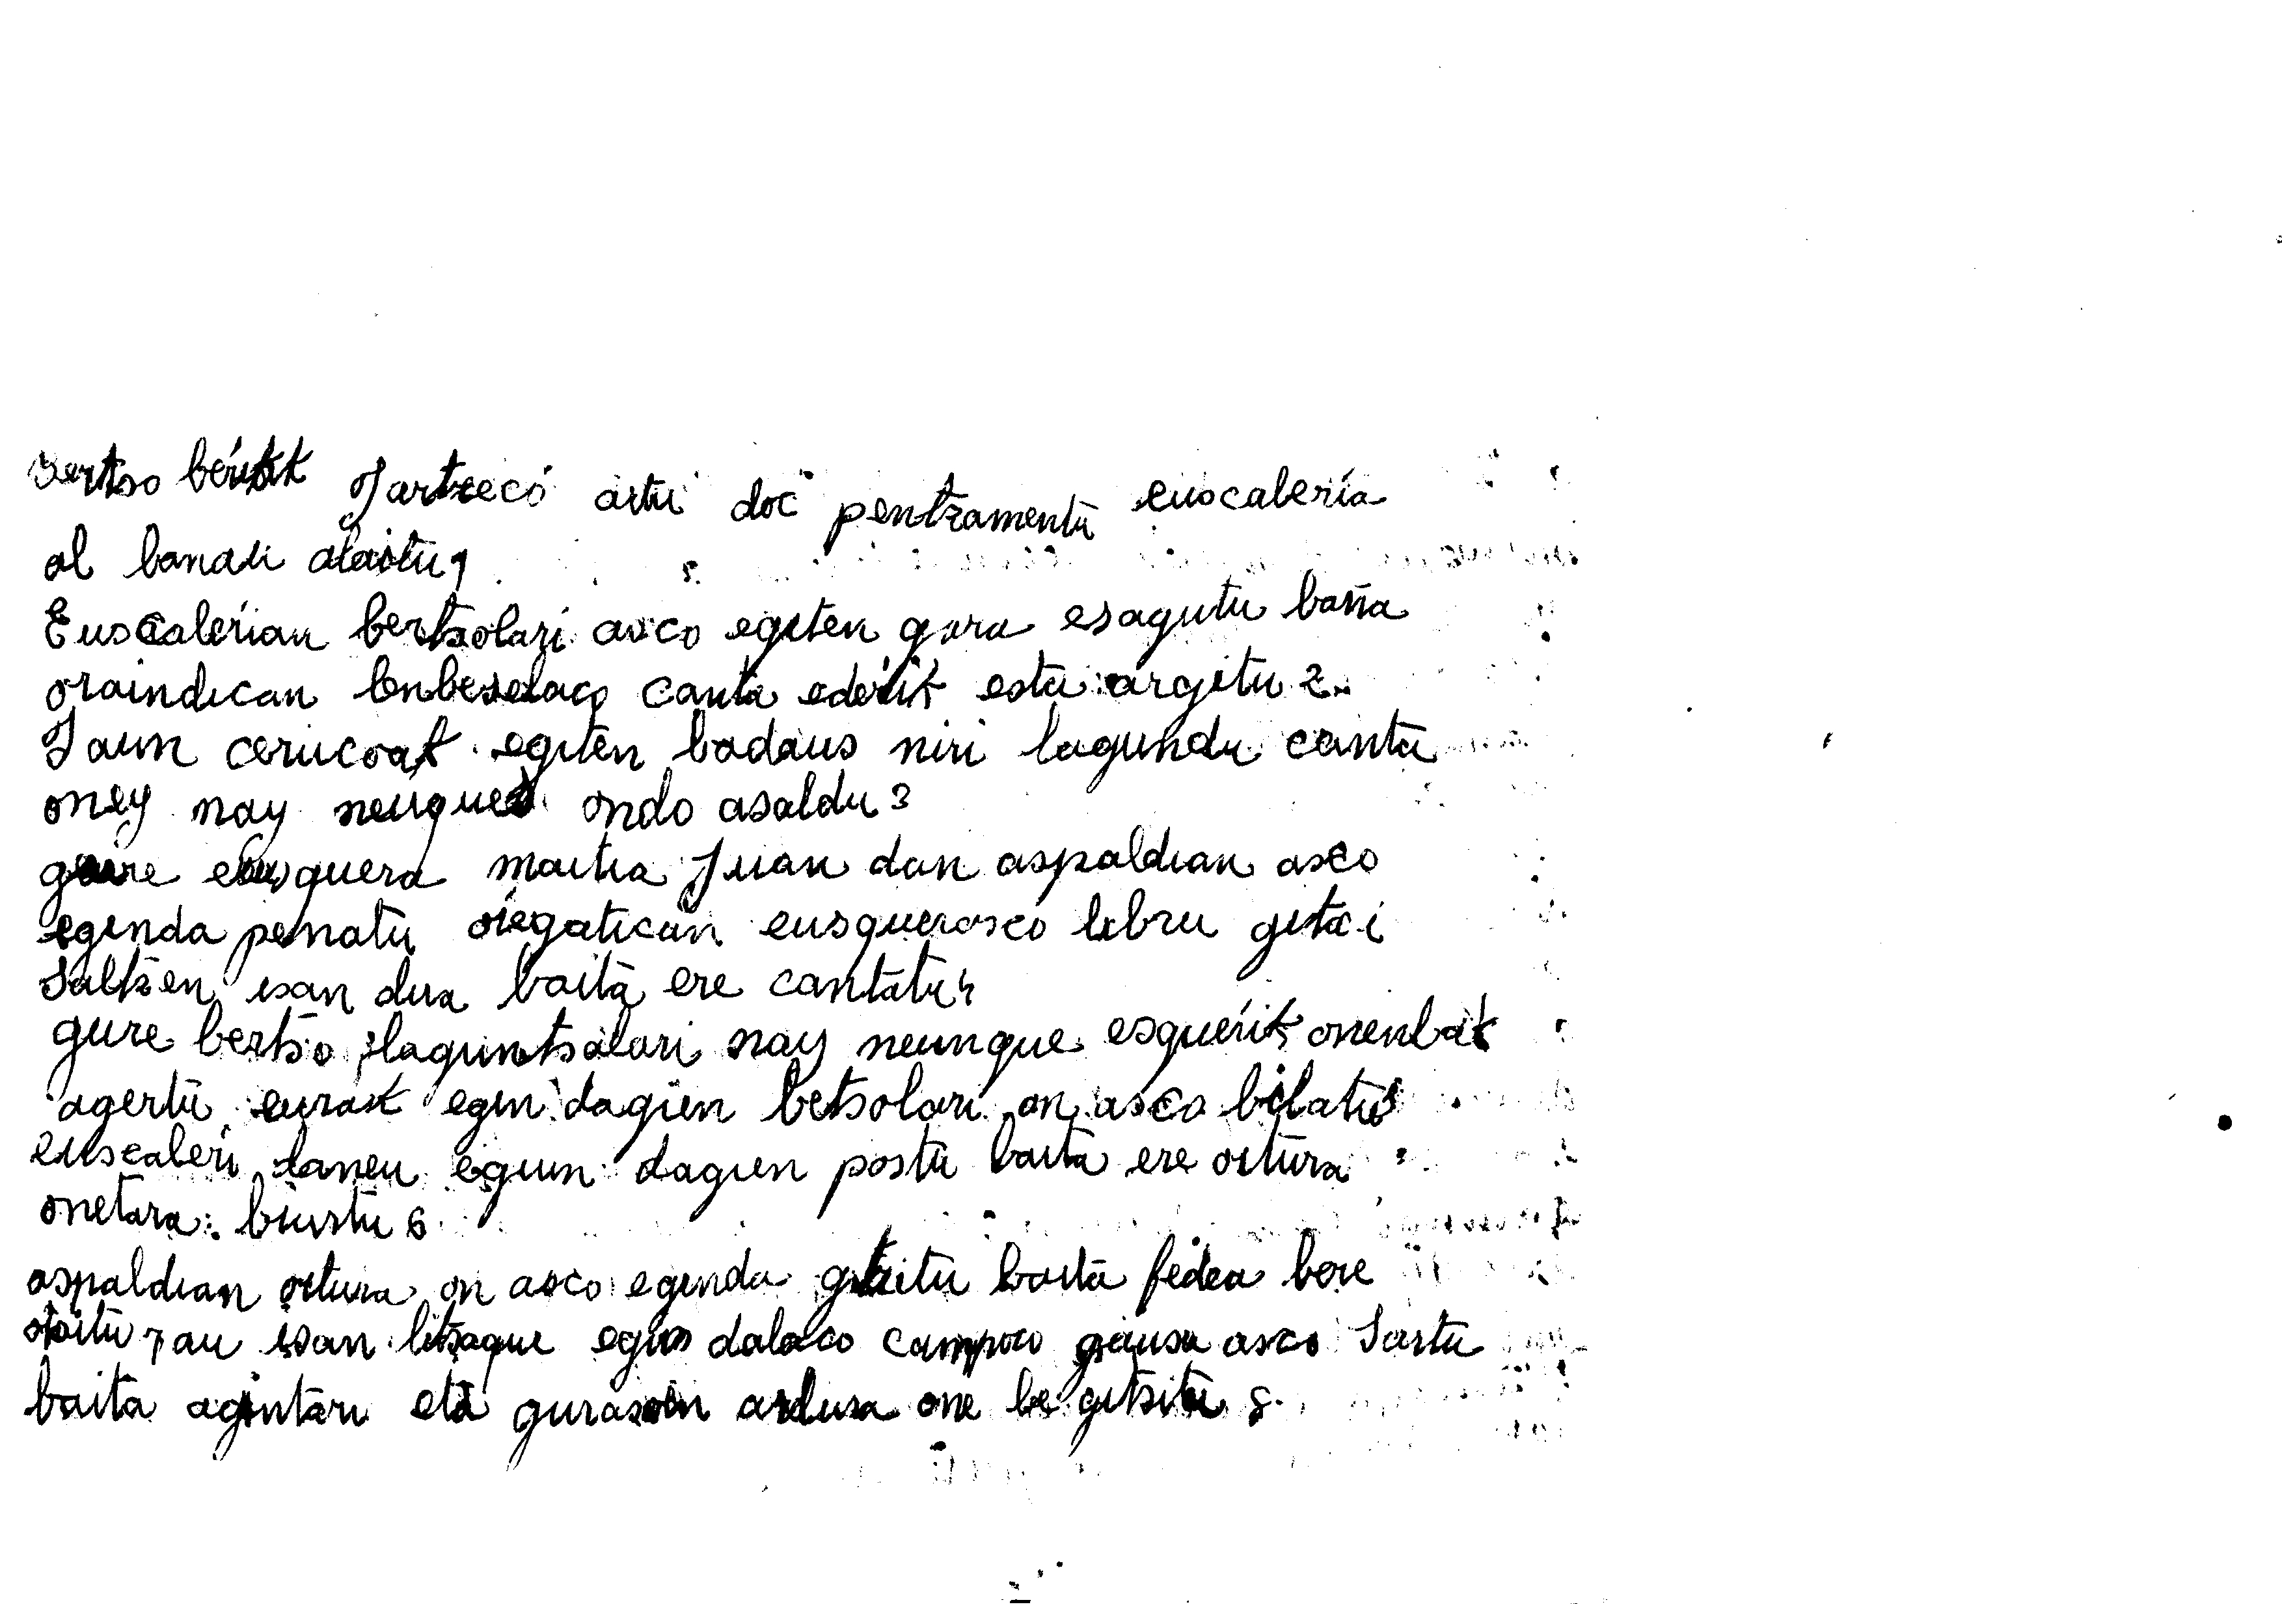 Bertso beriak Jartzeco artu doc pentzamentu euscaleria
al banau alaitu 1
Euscalerian bertzolari asco egiten gara esagutu baña
oraindican lenbeselaco canta ederik estu argitu 2
Jaun cerucoak egiten badaus niri lagundu canta
oney nay neuque ondo asaldu 3
gure eusquera maitia Juan dan aspaldian asco
eginda penatu oregatican eusquerasco libru gitxi
Saltzen isan dira baita ere cantatu 4
gure bertso laguntsalari nay neunque esquerik onenbat
agertu eurak egin dagien betsolari on asco bilatu 5
euscaleri daneu egun dagien postu baita ere oitura
onetara biurtu 6
aspaldian oitura on asco eginda gitxitu baita fedea bere
otzitu 7 au isan litzaque egun dalaco campoco gausa asco Sartu
baita agintari eta gurasoen ardura one be gitsitu 8